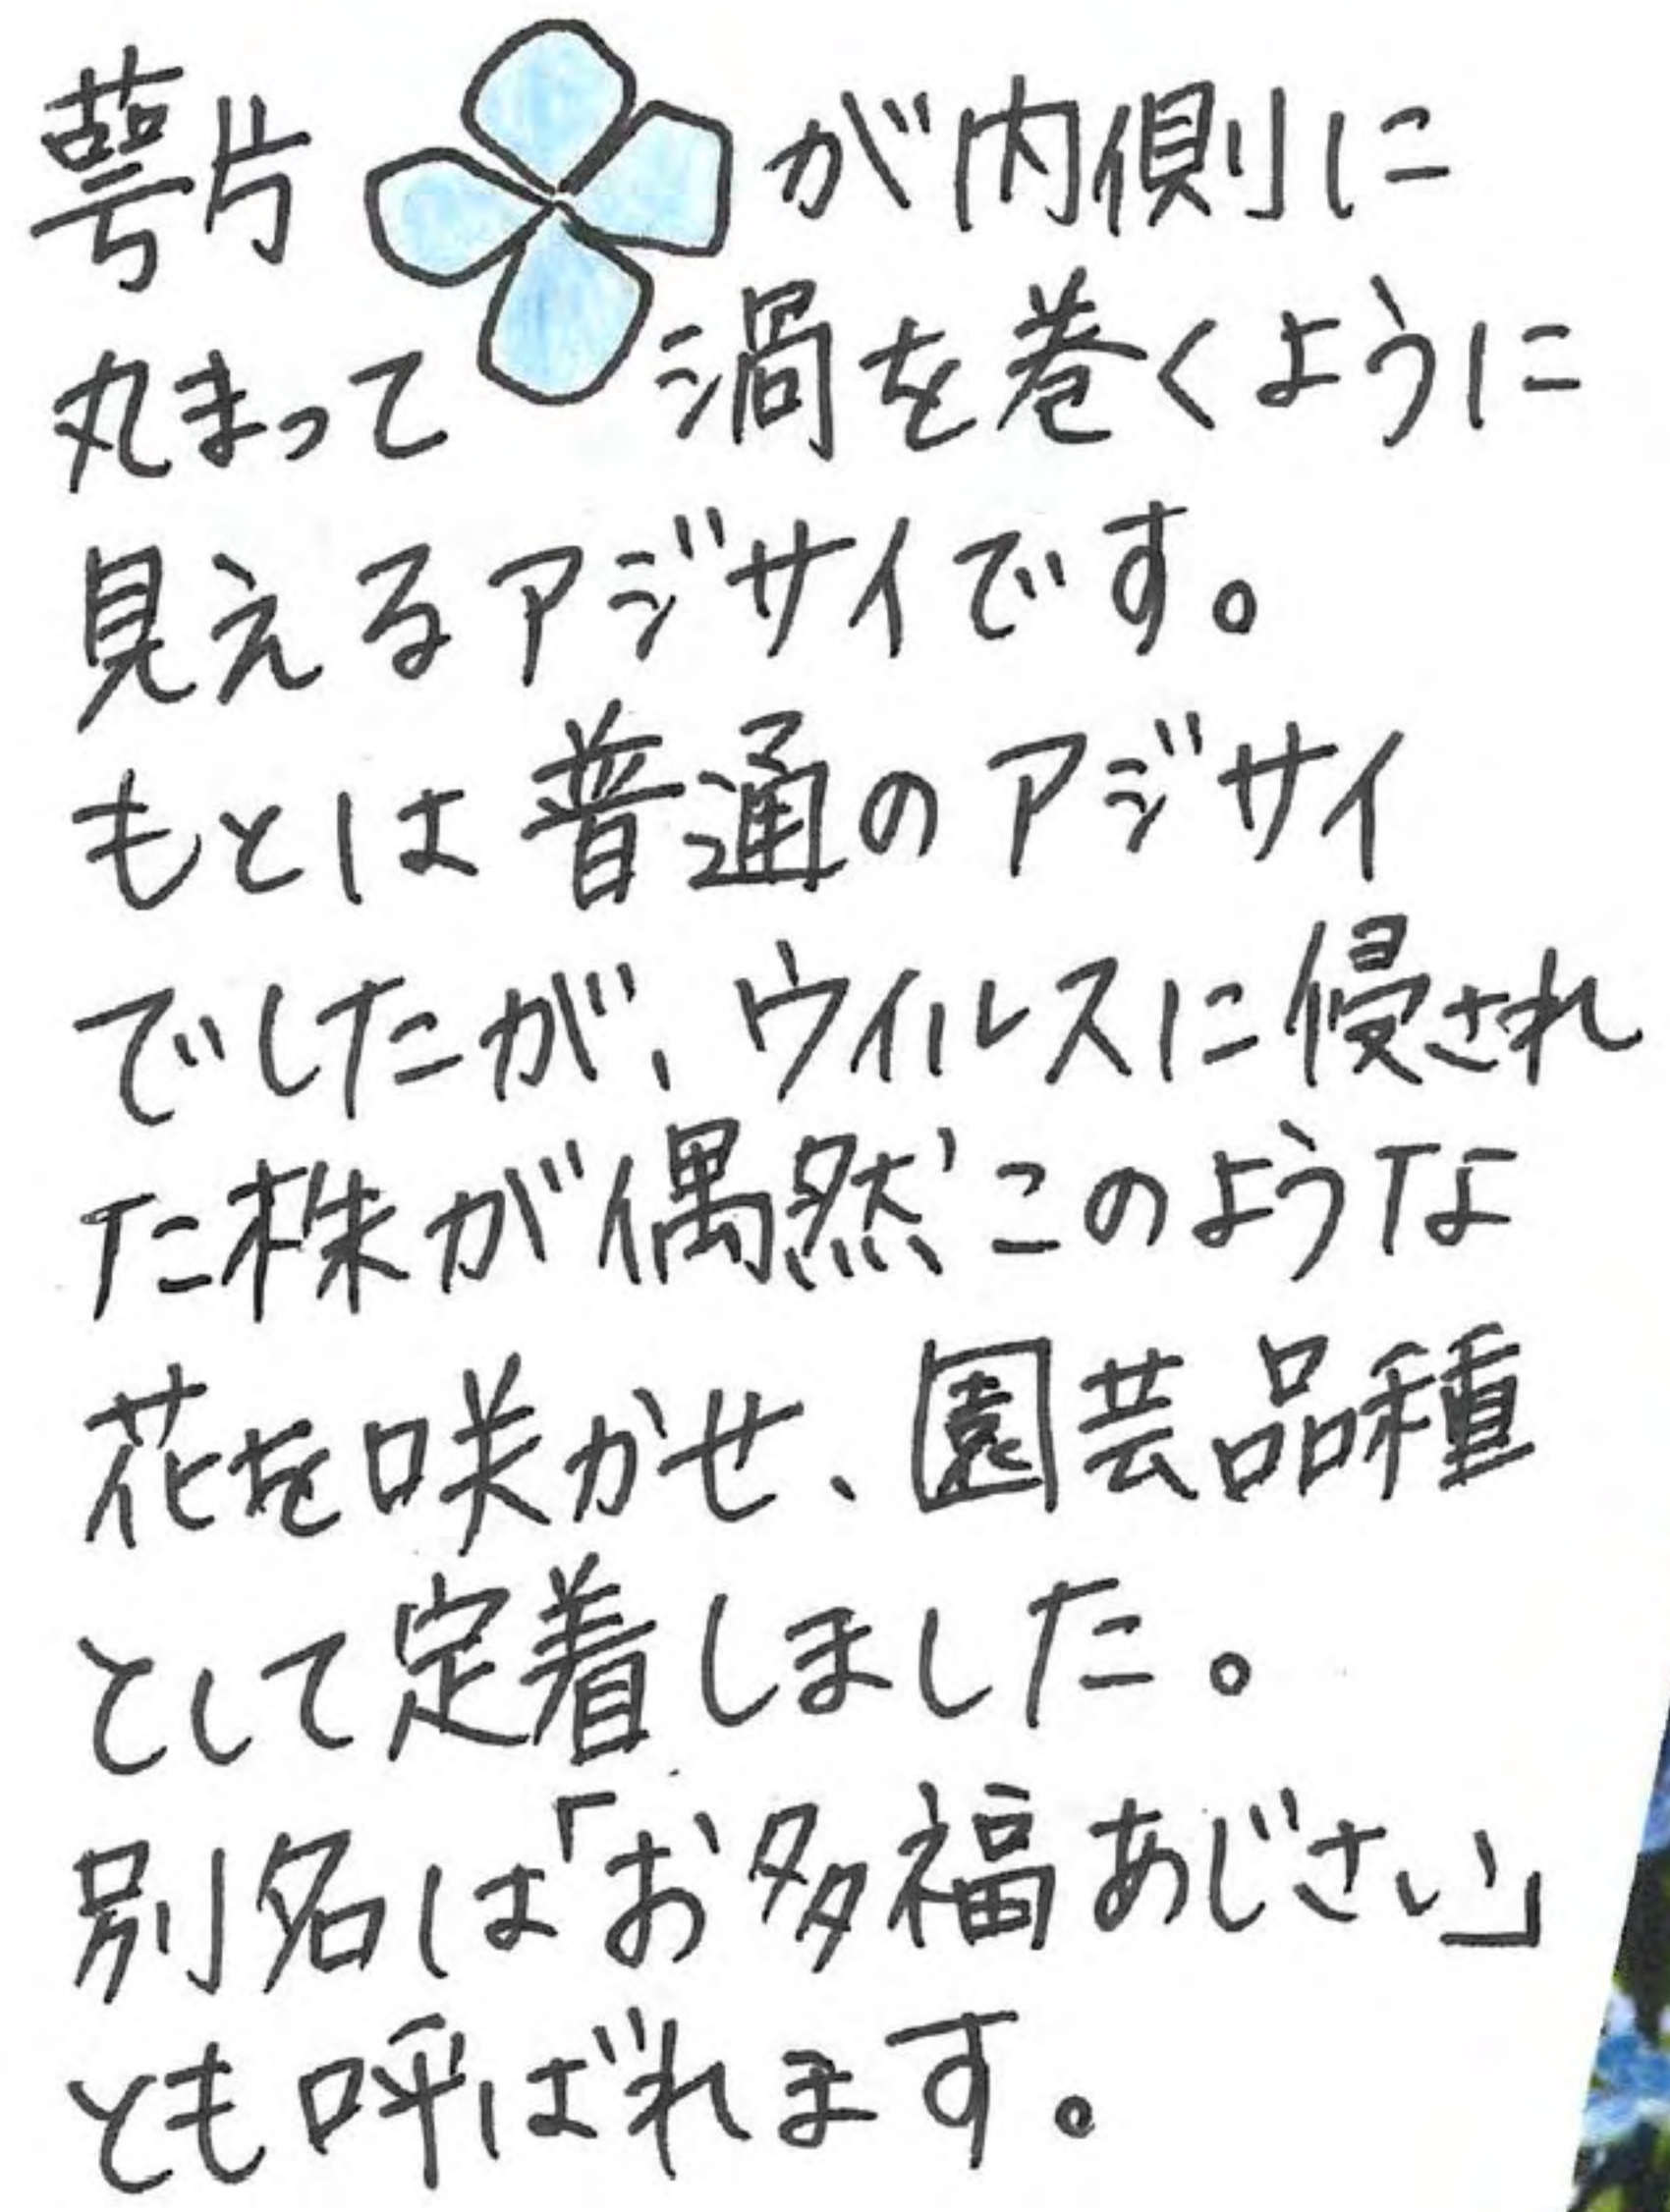 萼片が内側に
丸まって渦を巻くように
見えるアジサイです。
もとは普通のアジサイ
でしたが、ウイルスに侵され
た株が偶然このような
花を咲かせ、園芸品種
として定着しました。
別名は「お多福あじさい」
とも呼ばれます。